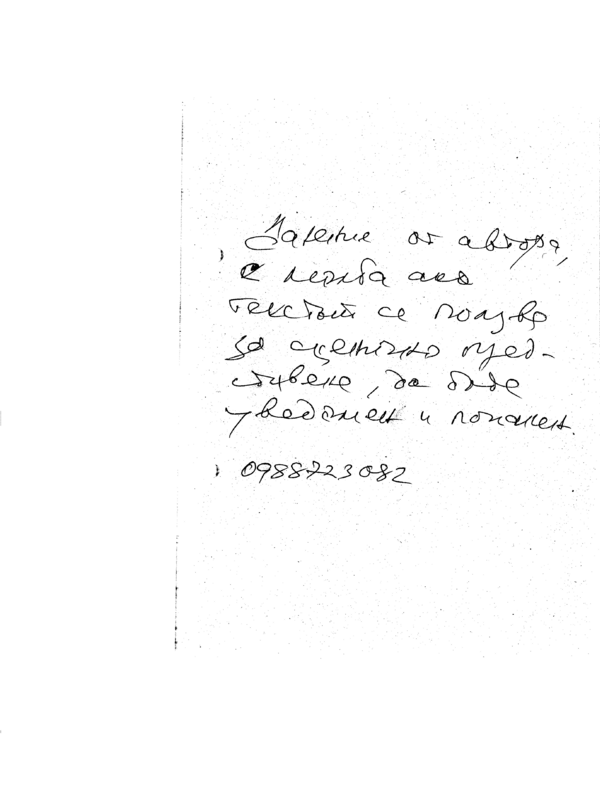 Дарение от автора,
с молба ако
текстът се ползва
за сценично пред-
ставяне, да бъде
уведомен и поканен.
0988723082